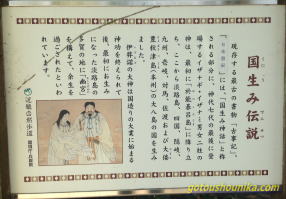 国生み伝説
現存する最古の書物「古事記」、
「日本書紀」には、「国生み神話」と称
される部分に、神代七代の最後に登
場するイザナギ・イザナミ男女二柱の
神は、最初に「於能碁呂島」に降り立
ち、ここから淡路島、四国、隠岐、
九州、壱岐、対馬、佐渡および大倭
豊秋津島(本州)の大八島の国を生み
ました。
伊弉諾の大神は国造りの大業に始まる
神功を終えられて
後、最初にお生み
になった淡路島の
多賀の地に「幽宮」
を構えて余生を
過ごされたといわ
れています。
近畿自然歩道
環境庁・兵庫県
gotoushounika.com